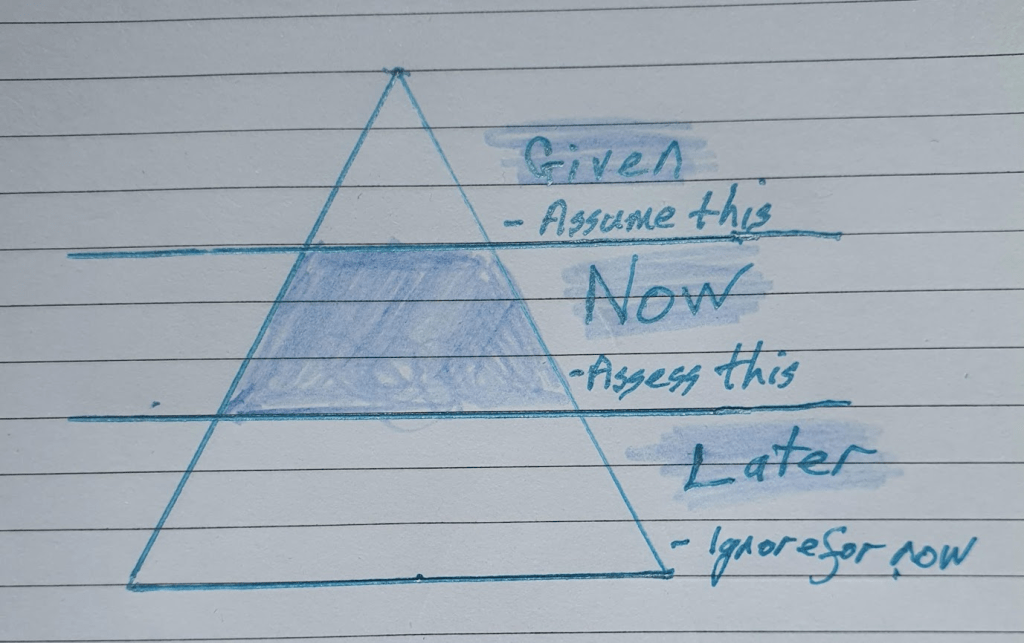 Given
- Assume this
Now
- Assess this
Later
- Ignore for now